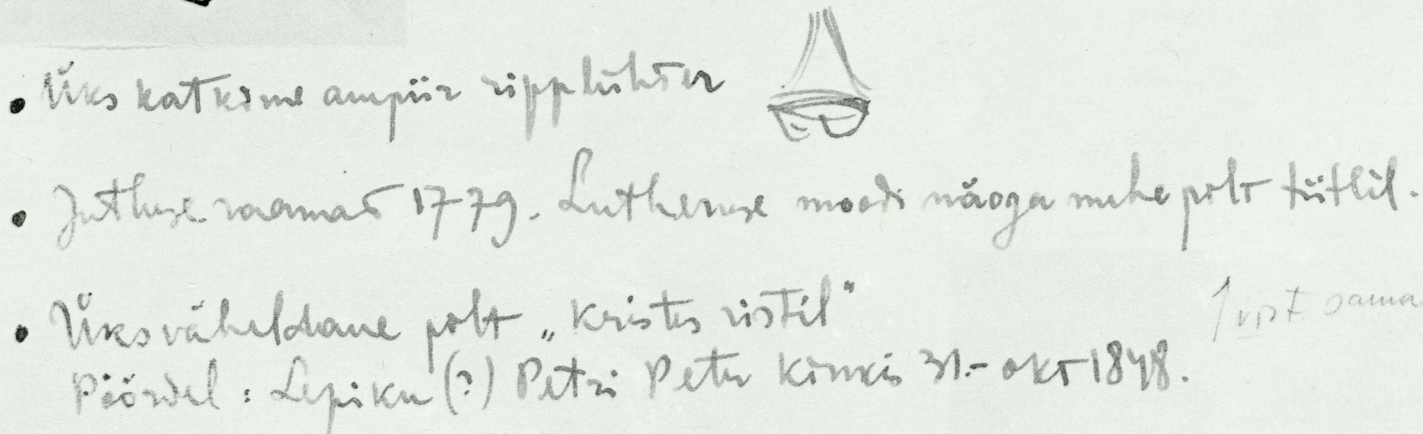 • Üks katkine ampiir ripplühter
• Jutluse raamat 1779. Lutheruse moodi näoga mehe pilt tiitlil.
• Üks väheldane pilt „Kristus ristil"
Pöördel: Lepiku (?) Petri Peter kinkis 31.- okt 1848.
vist sama